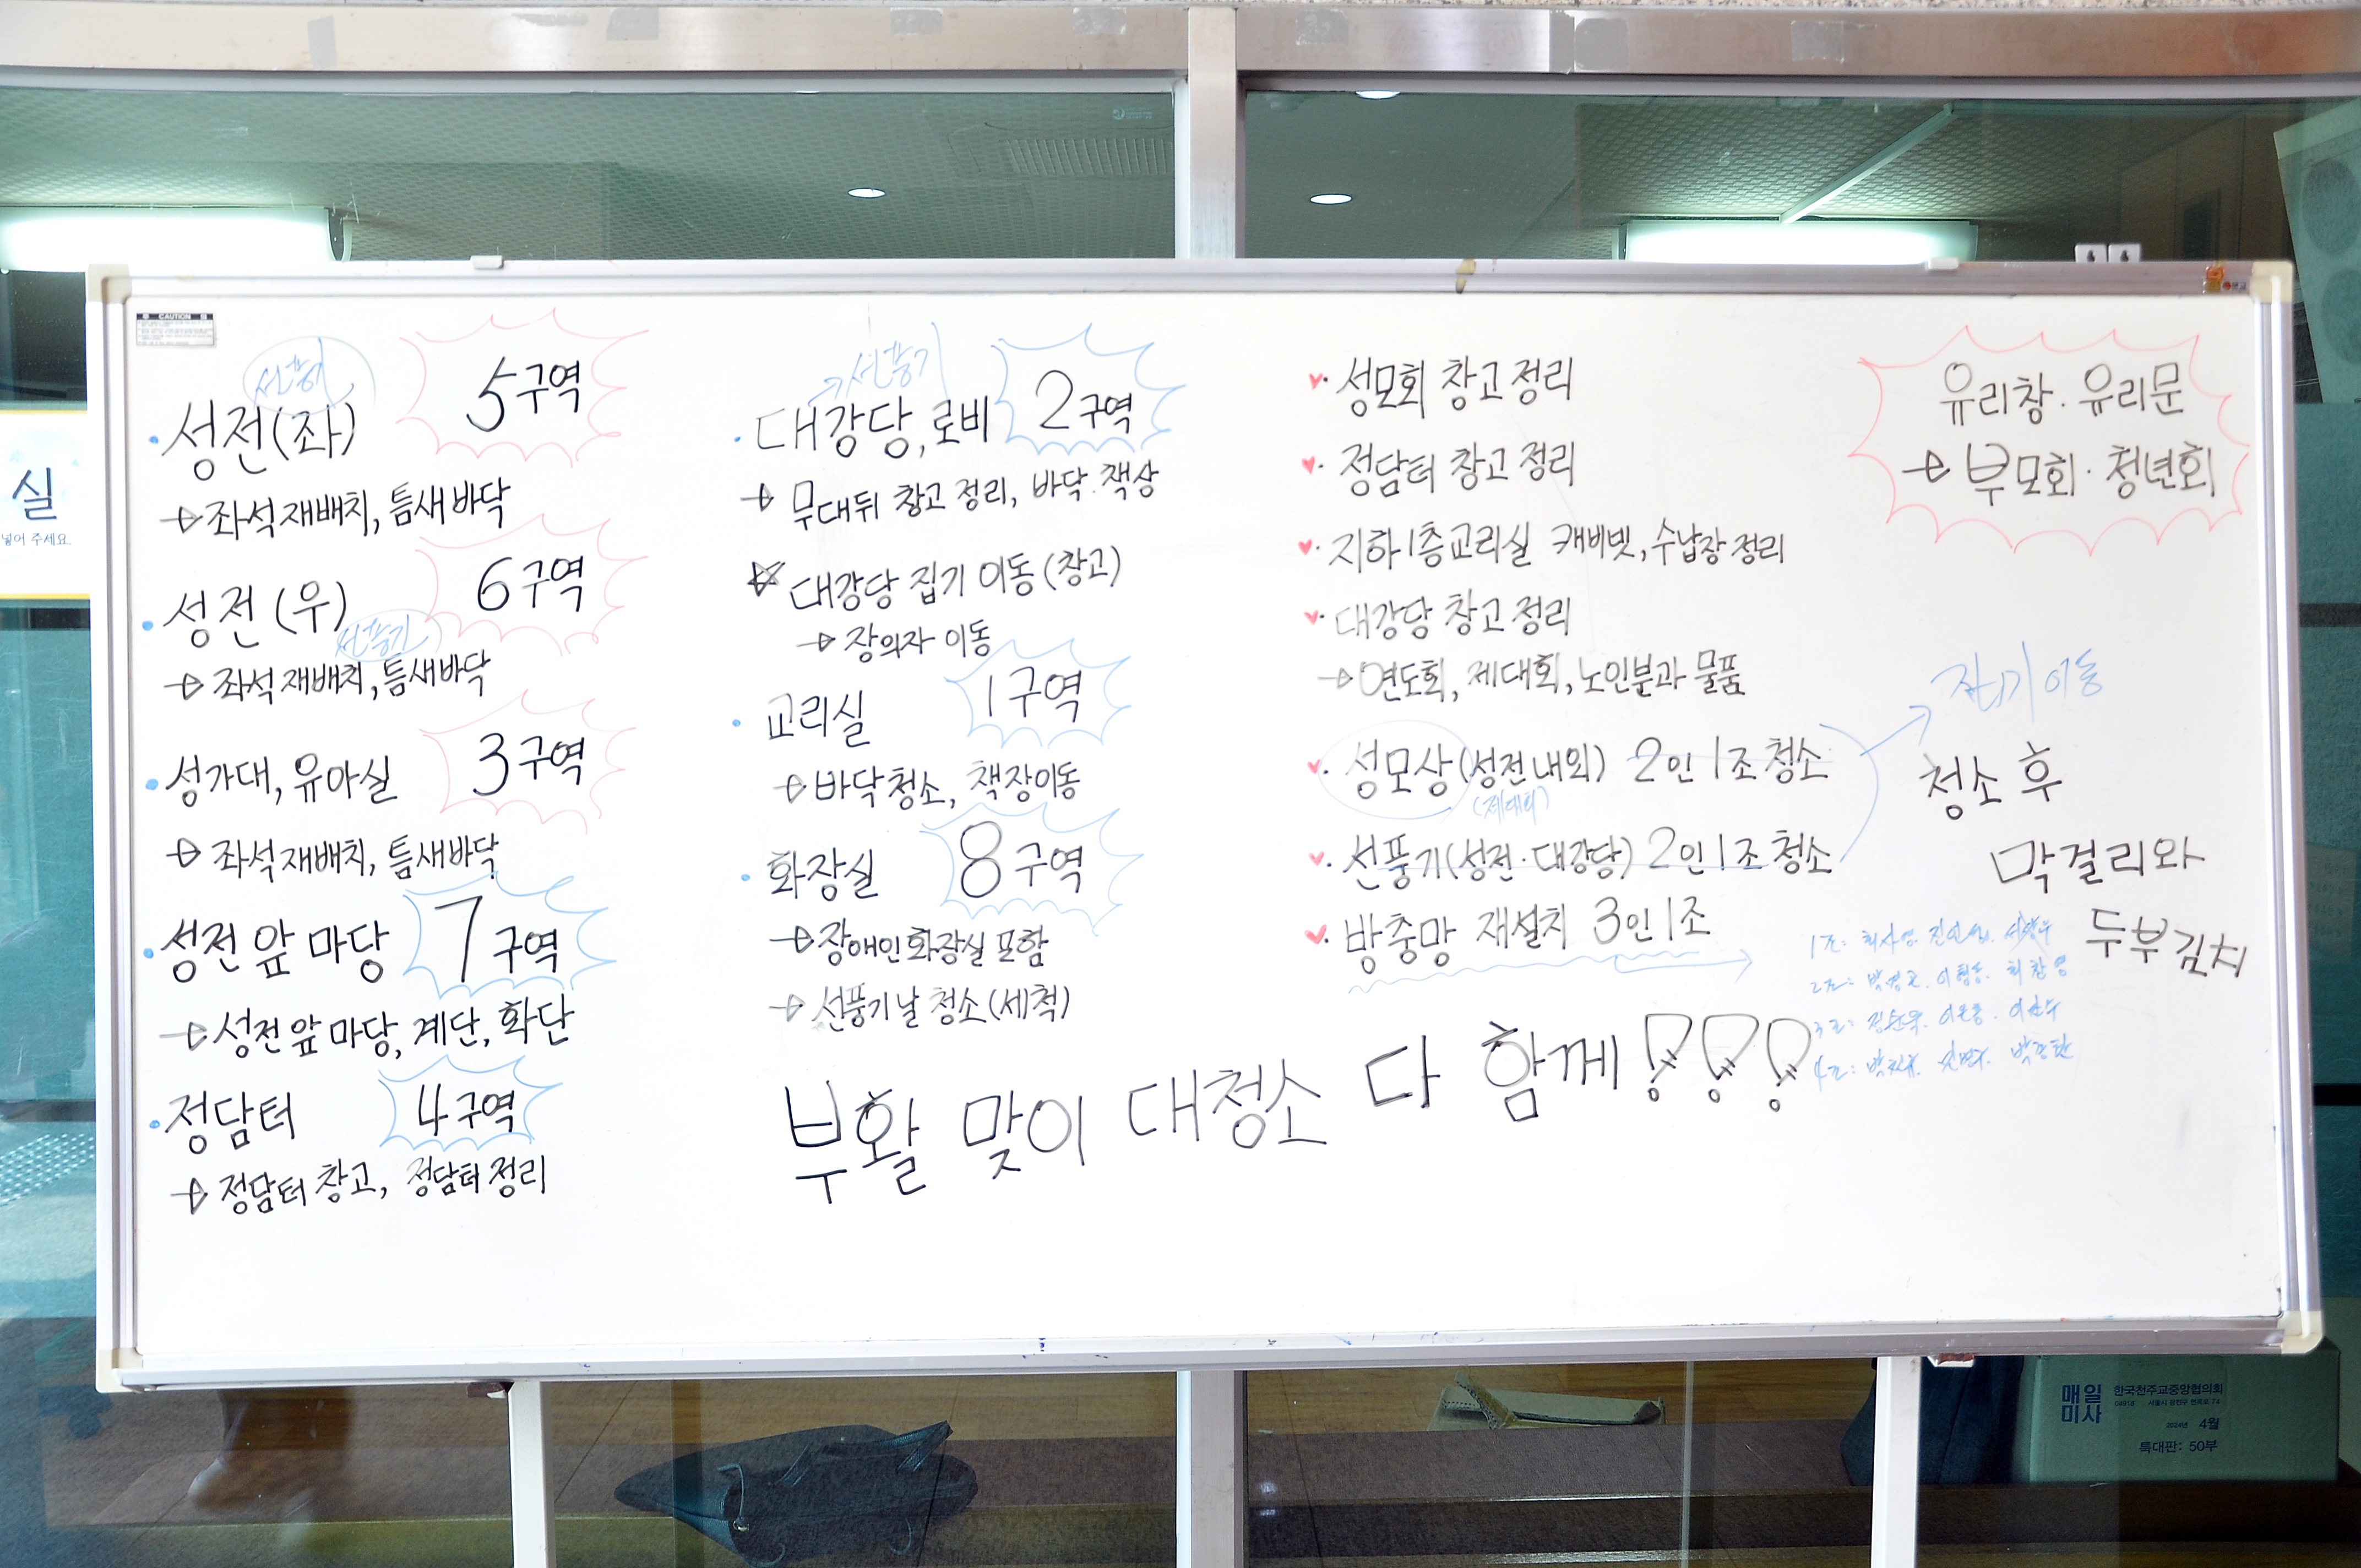 실
넣어 주세요.
CAUTION
선풍기
성전(좌) 5구역
→ 좌석 재배치, 틈새 바닥
성전(우) 6구역
선풍기
→ 좌석 재배치, 틈새바닥
성가대, 유아실 3구역
→ 좌석 재배치, 틈새바닥
성전 앞 마당 7구역
→ 성전 앞 마당, 계단, 화단
정담터 4구역
→ 정담터 창고, 정담터 정리
선풍기
대강당, 로비 2구역
→ 무대뒤 창고 정리, 바닥. 책상
대강당 집기 이동 (창고)
→ 장의자 이동
교리실 1구역
→ 바닥 청소, 책장이동
화장실 8구역
→ 장애인 화장실 포함
→ 선풍기 날 청소 (세척)
성모회 창고 정리
정담터 창고 정리
지하1층교리실 캐비넷, 수납장 정리
대강당 창고 정리
→ 연도회, 제대회, 노인분과 물품
성모상 (성전 내외) 2인 1조 청소
(제대회)
선풍기 (성전·대강당) 2인 1조 청소
방충망 재설치 3인 1조
유리창·유리문
→ 부모회·청년회
집기이동
청소 후
막걸리와
두부김치
1조:
2조:
3조:
4조:
부활 맞이 대청소 다 함께!!!
매일
미사
한국천주교중앙협의회
04918 서울시 광진구 면목로 74
2024년 4월
특대판: 50부